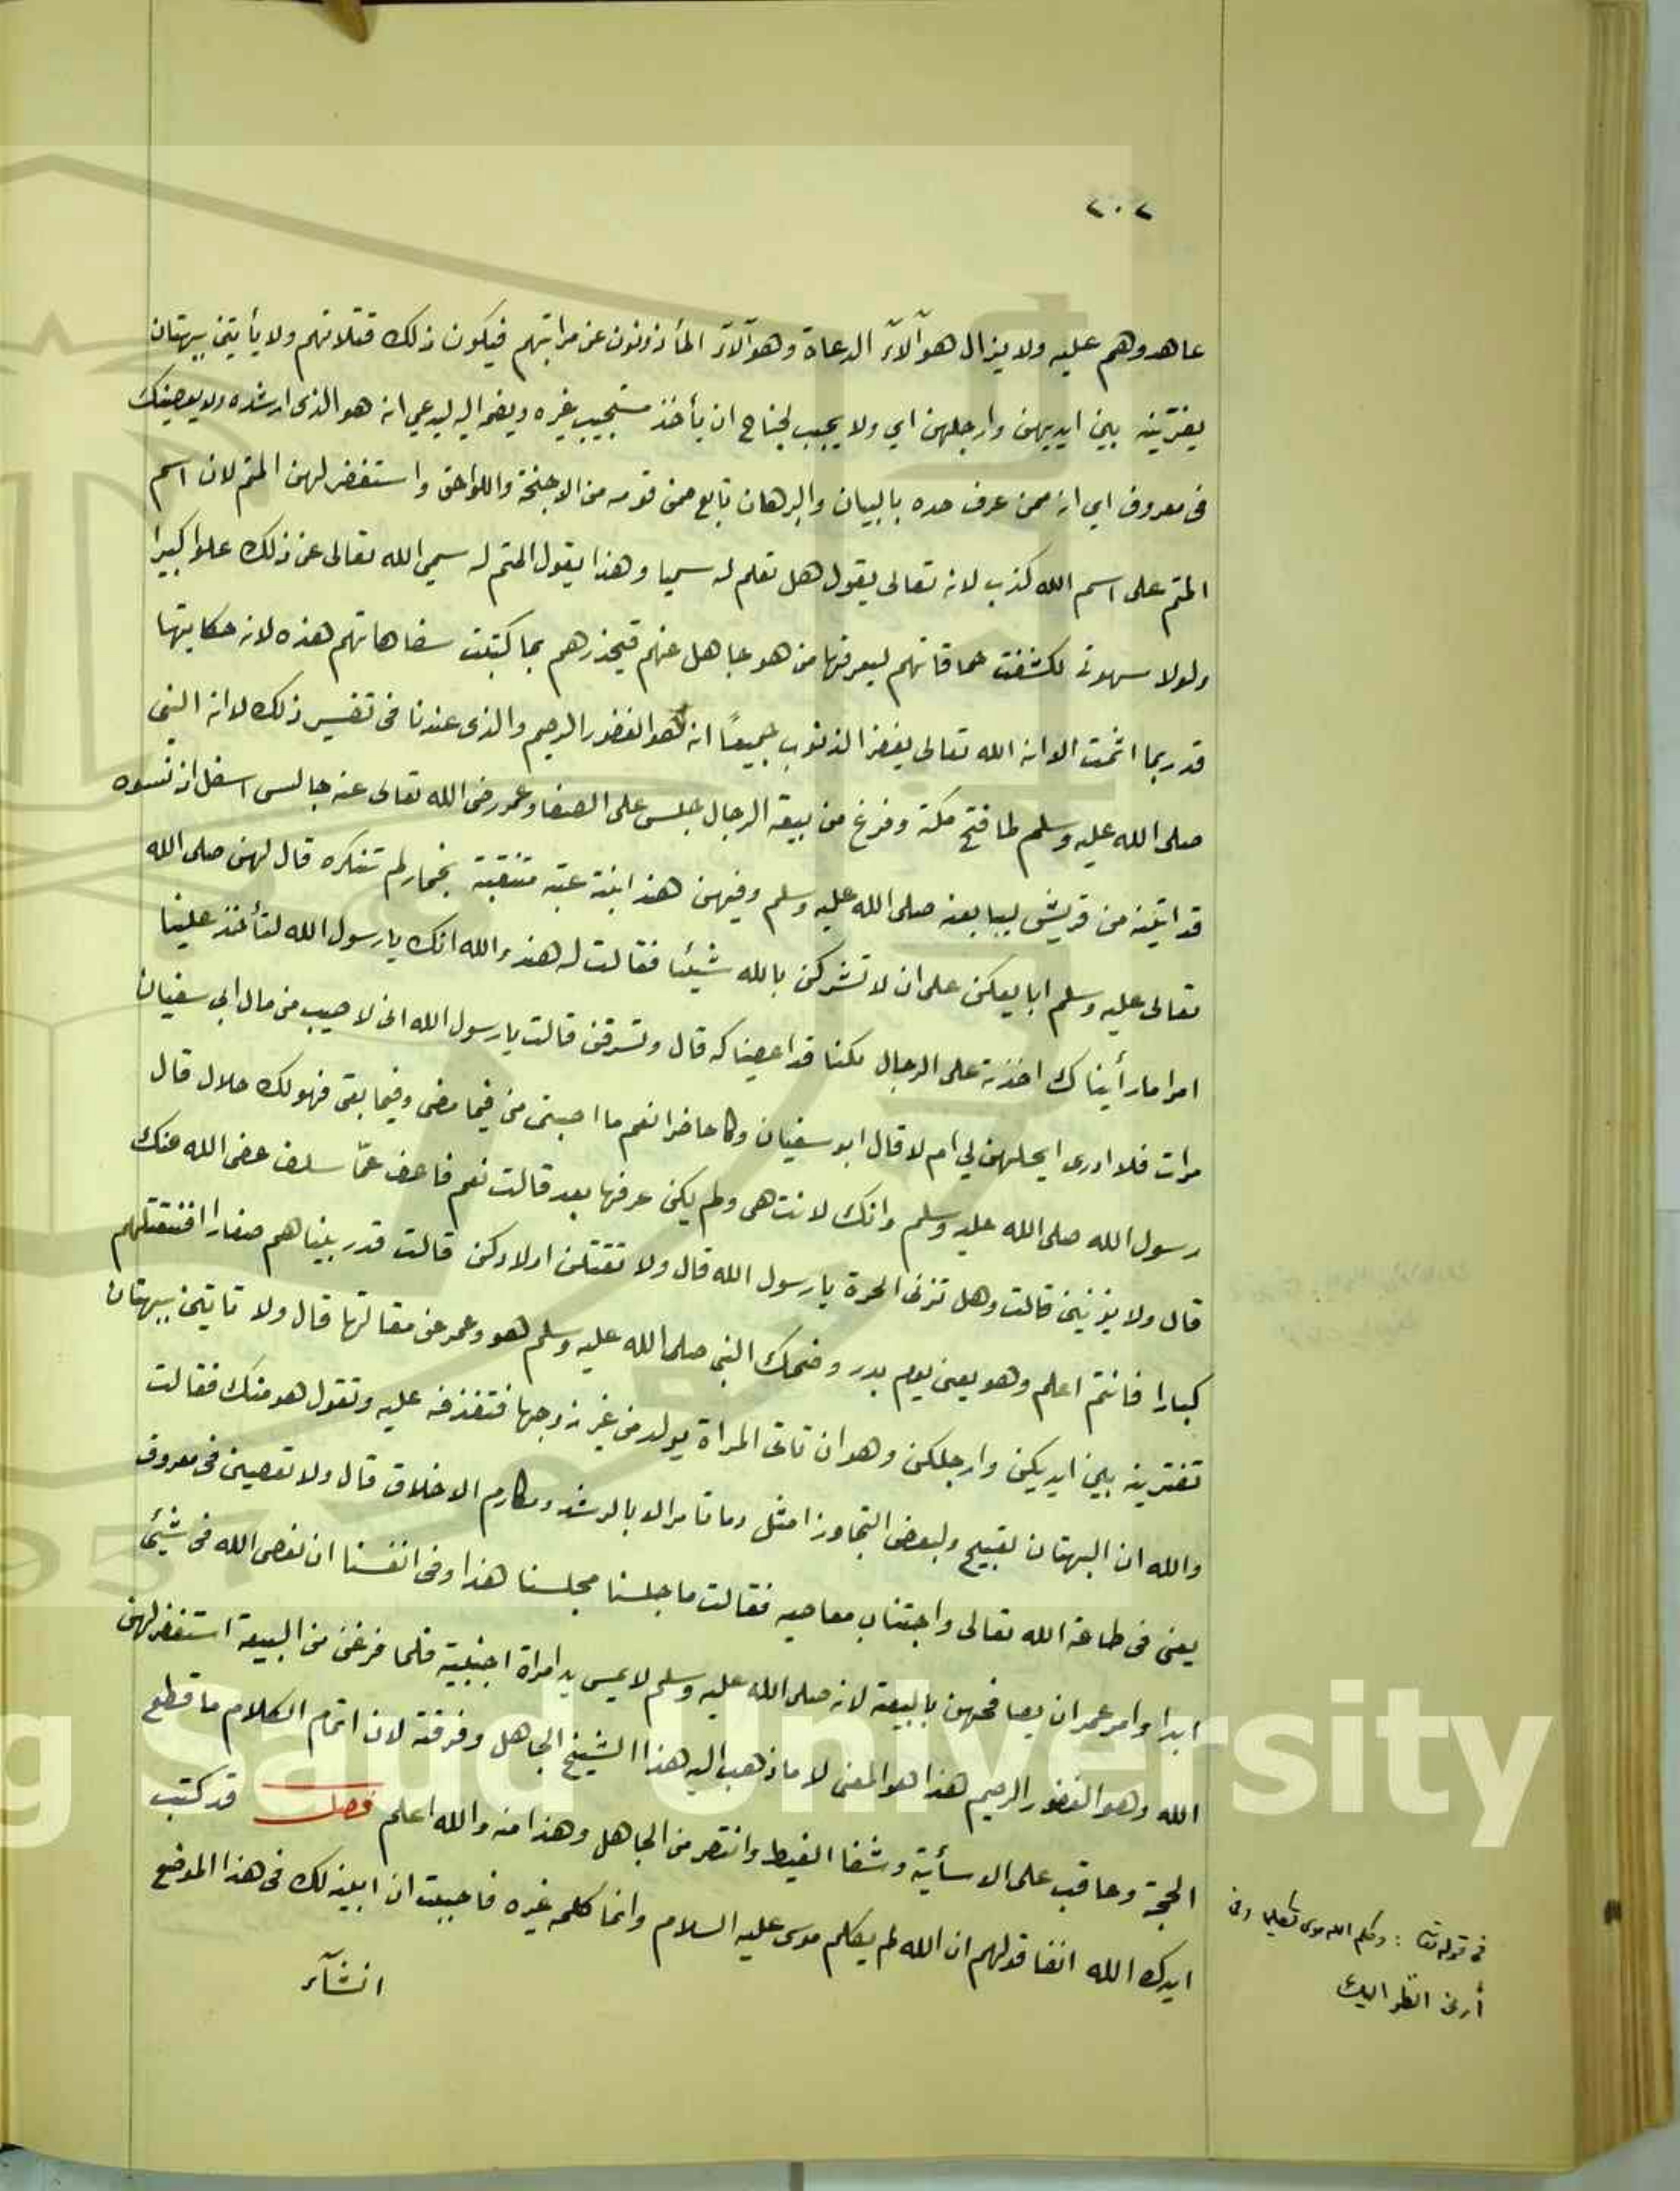 ٢٠٢
عاهدوهم عليه ولا يزال هوآلآء الدعاة وهوآلآء المأذونون عن مراتبهم فيكون ذلك قتلاتهم ولا يأتين ببهتان
يفترينه بين ايديهن وارجلهن اي ولا يجب لجناح ان يأخذ مستجيب غيره ويضمه اليه ليدعي انه هو الذي ارشده ولا يعصينك
في معروف اي انه ممن عرف حده بالبيان والبرهان تابع ممن قومه من الاجنحة واللواحق واستغفر لهن المتم لان اسم
المتم على اسم الله كذب لانه تعالى يقول هل تعلم له سميا وهذا يقول المتم له سمي الله تعالى عن ذلك علوا كبيرا
ولولا سهوتى لكشفت حماقاتهم ليعرفها من هو جاهل عنهم فيحذرهم بما كتبت سفاهاتهم هذه لانه حكايتها
قد ربما اثمت الا انه الله تعالى يغفر الذنوب جميعًا انه هو الغفور الرحيم والذى عندنا في تفسير ذلك لو انه النبي
صلى الله عليه وسلم لما فتح مكة وفرغ من بيعة الرجال جلس على الصفا وعمر رضي الله تعالى عنه جالس اسفل اذ نسوه
قد اتينه من قريش ليبايعنه صلى الله عليه وسلم وفيهن هند ابنة عتبة متنقبة بخمار لم تنكره قال لهن صلى الله
تعالى عليه وسلم ابايعكن على ان لا تشركن بالله شيئا فقالت له هند والله انك يا رسول الله لتأخذ علينا
امرا ما رأيناك اخذته على الرجال لكنا قد اعطيناكه قال وتسرقن قالت يا رسول الله انى لاصيب من مال ابى سفيان
مرات فلا ادرى ايحلهن لي ام لا قال ابو سفيان وكا حاضرا نعم ما اصبتى من فيما مضى وفيما بقى فهو لك حلال قال
رسول الله صلى الله عليه وسلم وانك لانت هى ولم يكن عرفها بعد قالت نعم فاعف عمّا سلف عفى الله عنك
قال ولا يزنين قالت وهل تزنى الحرة يا رسول الله قال ولا تقتلن اولادكن قالت قد ربيناهم صغارا افنقتلهم
كبارا فانتم اعلم وهو يعنى يوم بدر وضحك النبي صلى الله عليه وسلم هو وعمر عن مقالتها قال ولا تاتين ببهتان
تفترينه بين ايديكن وارجلكن وهو ان تاتى المراة بولد من غير زوجها فتقذفه عليه وتقول هو منك فقالت
والله ان البهتان لقبيح ولبعض التجاوز امثل وما تامر الا بالرشد ومكارم الاخلاق قال ولا تعصين في معروف
يعنى فى طاعة الله تعالى واجتناب معاصيه فقالت ما جلسنا مجلسنا هذا وفى انفسنا ان نعصى الله فى شيئ
ابدا وامر عمر ان يصافحهن بالبيعة لانه صلى الله عليه وسلم لا يمس يد امراة اجنبية فلما فرغن من البيعة استغفر لهن
الله وهو الغفور الرحيم هذا هو المعنى لا ما ذهب اليه هذا الشيخ الجاهل وفرقته لان اتمام الكلام ما قطع
الحجة وعاقب على الاسأته وشفا الغيظ وانتصر من الجاهل وهذا منه والله اعلم فصل قد كتبت
ايدك الله انفا قولهم ان الله لم يكلم موسى عليه السلام وانما كلمه غيره فاحببت ان ابينه لك فى هذا الموضع
انشآء
في قوله تعا : وكلم الله موسى تكليما وفى
أرنى انظر اليك
g Saud University
957